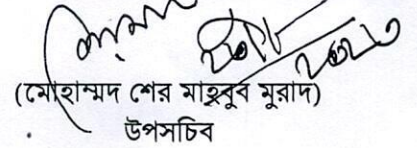 (মোহাম্মদ শের মাহবুব মুরাদ)
উপসচিব